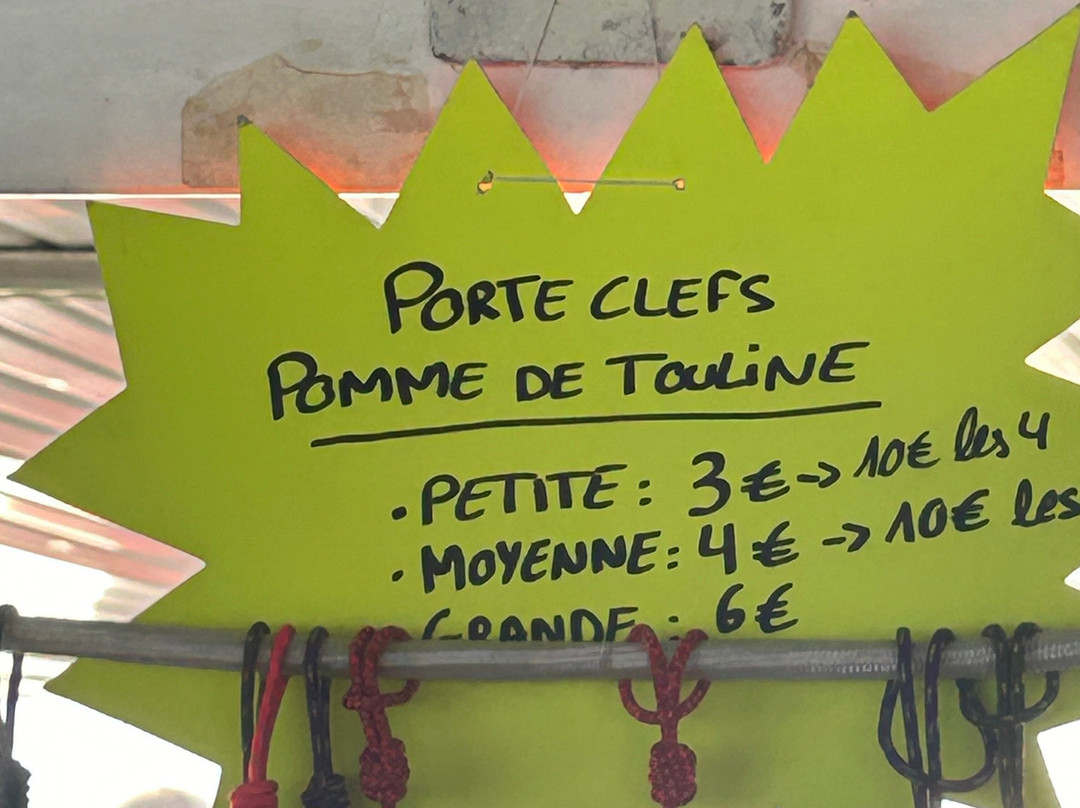 PORTE CLEFS
POMME DE TOULINE
. PETITE : 3€ -> 10€ les 4
. MOYENNE : 4€ -> 10€ les
GRANDE : 6€